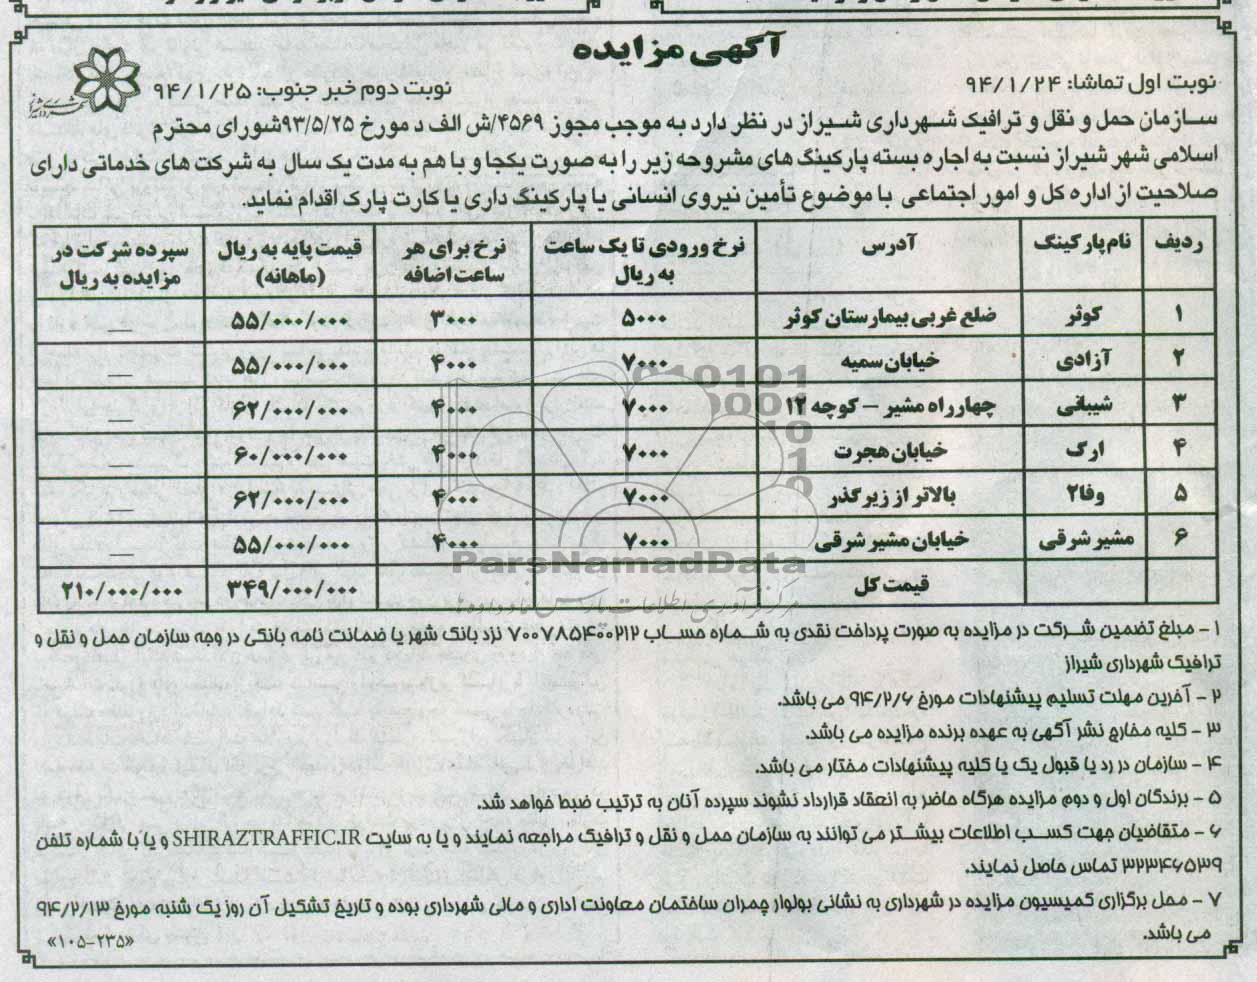 آگهی مزایده
نوبت اول تماشا: ۹۴/۱/۲۴
نوبت دوم خبر جنوب: ۹۴/۱/۲۵
سازمان حمل و نقل و ترافیک شهرداری شیراز در نظر دارد به موجب مجوز ۴۵۶۹/ش الف د مورخ ۹۳/۵/۲۵شورای محترم
اسلامی شهر شیراز نسبت به اجاره بسته پارکینگ های مشروحه زیر را به صورت یکجا و با هم به مدت یک سال به شرکت های خدماتی دارای
صلاحیت از اداره کل و امور اجتماعی با موضوع تأمین نیروی انسانی یا پارکینگ داری یا کارت پارک اقدام نماید.
ردیف نام پارکینگ آدرس نرخ ورودی تا یک ساعت به ریال نرخ برای هر ساعت اضافه قیمت پایه به ریال (ماهانه) سپرده شرکت در مزایده به ریال
۱ کوثر ضلع غربی بیمارستان کوثر ۵۰۰۰ ۳۰۰۰ ۵۵/۰۰۰/۰۰۰ __
۲ آزادی خیابان سمیه ۷۰۰۰ ۴۰۰۰ ۵۵/۰۰۰/۰۰۰ __
۳ شیبانی چهارراه مشیر – کوچه ۱۲ ۷۰۰۰ ۴۰۰۰ ۶۲/۰۰۰/۰۰۰ __
۴ ارک خیابان هجرت ۷۰۰۰ ۴۰۰۰ ۶۰/۰۰۰/۰۰۰ __
۵ وفا۲ بالاتر از زیر گذر ۷۰۰۰ ۴۰۰۰ ۶۲/۰۰۰/۰۰۰ __
۶ مشیر شرقی خیابان مشیر شرقی ۷۰۰۰ ۴۰۰۰ ۵۵/۰۰۰/۰۰۰ __
قیمت کل ۳۴۹/۰۰۰/۰۰۰ ۲۱۰/۰۰۰/۰۰۰
ParsNamadData
۱ - مبلغ تضمین شرکت در مزایده به صورت پرداخت نقدی به شماره حساب ۷۰۰۷۸۵۴۰۰۲۱۲ نزد بانک شهر یا ضمانت نامه بانکی در وجه سازمان حمل و نقل و
ترافیک شهرداری شیراز
۲ - آخرین مهلت تسلیم پیشنهادات مورخ ۹۴/۲/۶ می باشد.
۳ - کلیه مخارج نشر آگهی به عهده برنده مزایده می باشد.
۴ - سازمان در رد یا قبول یک یا کلیه پیشنهادات مختار می باشد.
۵ - برندگان اول و دوم مزایده هرگاه حاضر به انعقاد قرارداد نشوند سپرده آنان به ترتیب ضبط خواهد شد.
۶ - متقاضیان جهت کسب اطلاعات بیشتر می توانند به سازمان حمل و نقل و ترافیک مراجعه نمایند و یا به سایت SHIRAZTRAFFIC.IR و یا با شماره تلفن
۳۲۳۴۶۵۳۹ تماس حاصل نمایند.
۷ - محل برگزاری کمیسیون مزایده در شهرداری به نشانی بولوار چمران ساختمان معاونت اداری و مالی شهرداری بوده و تاریخ تشکیل آن روز یک شنبه مورخ ۹۴/۲/۱۳
می باشد.
«۱۰۵-۲۳۵»